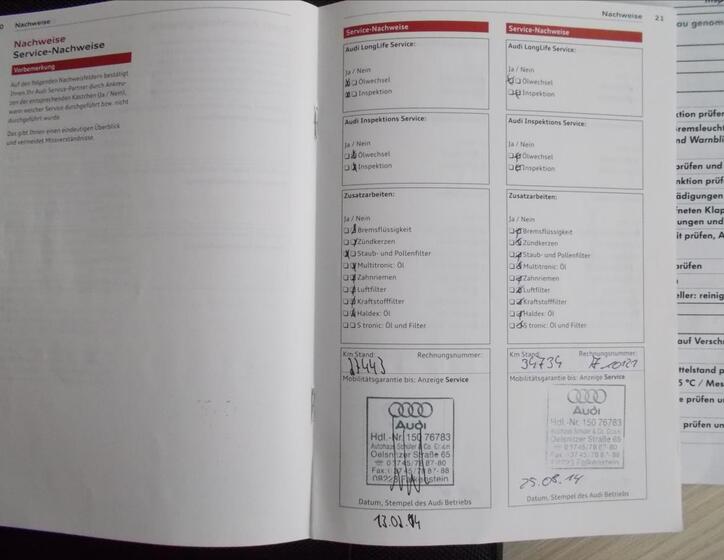 Nachweise
Nachweise
Service-Nachweise
Vorbemerkung
Auf den folgenden Nachweisfeldern bestätigt
Ihnen Ihr Audi Service-Partner durch Ankreu-
zen der entsprechenden Kästchen (Ja / Nein),
wann welcher Service durchgeführt bzw. nicht
durchgeführt wurde.
Das gibt Ihnen einen eindeutigen Überblick
und vermeidet Missverständnisse.
Service-Nachweise
Audi LongLife Service:
Ja / Nein
Ölwechsel
Inspektion
Audi Inspektions Service:
Ja / Nein
Ölwechsel
Inspektion
Zusatzarbeiten:
Ja / Nein
Bremsflüssigkeit
Zündkerzen
Staub- und Pollenfilter
Multitronic: Öl
Zahnriemen
Luftfilter
Kraftstofffilter
Haldex: Öl
S tronic: Öl und Filter
Km Stand: Rechnungsnummer:
27443
Mobilitätsgarantie bis: Anzeige Service
Audi
Hdl.-Nr. 150 76783
Autohaus Schüler & Co.
Oelsnitzer Straße 65
08223 Falkenstein
Datum, Stempel des Audi Betriebs
Nachweise 21
Service-Nachweise
Audi LongLife Service:
Ja / Nein
Ölwechsel
Inspektion
Audi Inspektions Service:
Ja / Nein
Ölwechsel
Inspektion
Zusatzarbeiten:
Ja / Nein
Bremsflüssigkeit
Zündkerzen
Staub- und Pollenfilter
Multitronic: Öl
Zahnriemen
Luftfilter
Kraftstofffilter
Haldex: Öl
S tronic: Öl und Filter
Km Stand: Rechnungsnummer:
34734
Mobilitätsgarantie bis: Anzeige Service
Audi
Hdl.-Nr. 150 76783
Autohaus Schüler & Co.
Oelsnitzer Straße 65
Falkenstein
25.08.14
Datum, Stempel des Audi Betriebs
au genom
ktion prüfen
remsleucht
nd Warnbli
prüfen und
nktion prüf
ädigungen
neten Klap
ungen und
it prüfen, A
prüfen
eller: reinig
auf Versch
ttelstand p
5 °C / Mes
e prüfen u
prüfen un